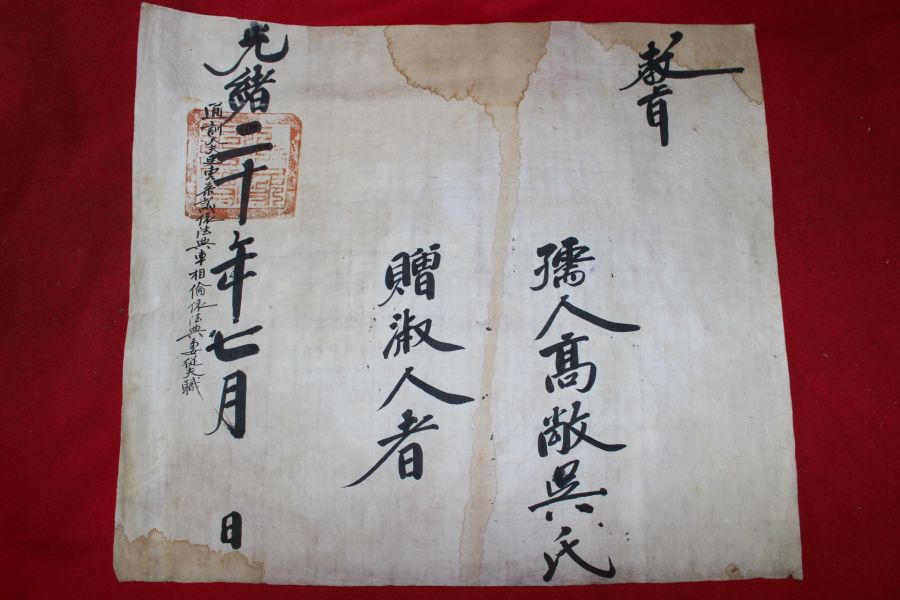 敎旨
孺人高敞吳氏
贈淑人者
光緖二十年七月 日
通訓大夫吏曹叅議依法典車相倫依法典妻從夫職